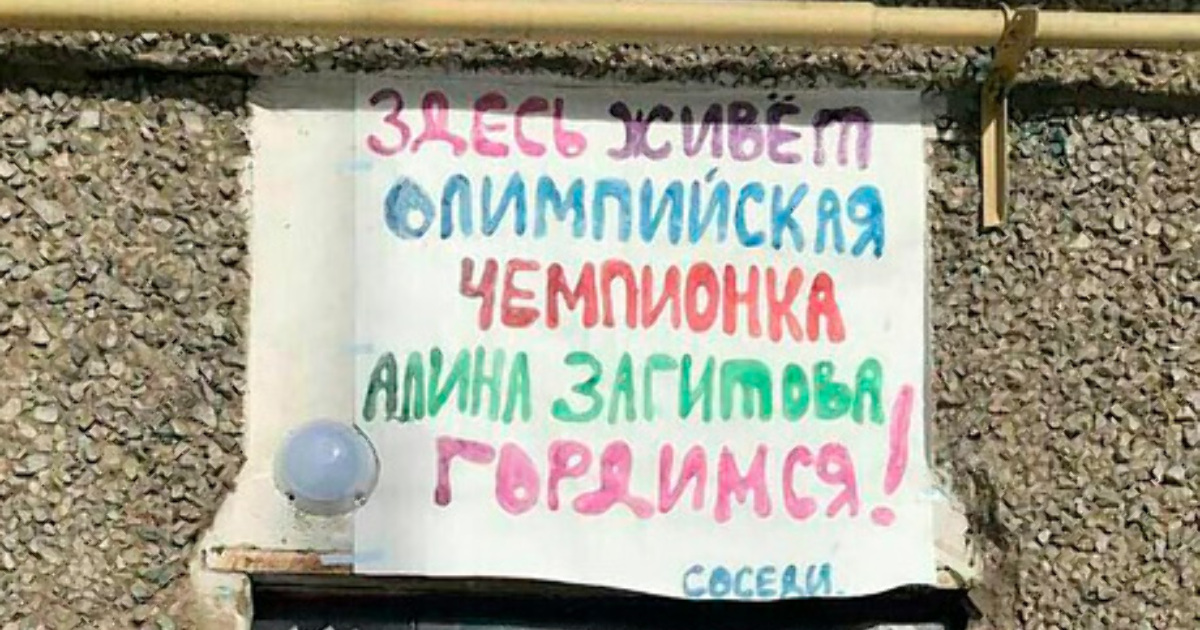 ЗДЕСЬ ЖИВЁТ
ОЛИМПИЙСКАЯ
ЧЕМПИОНКА
АЛИНА ЗАГИТОВА
ГОРДИМСЯ!
СОСЕДИ.